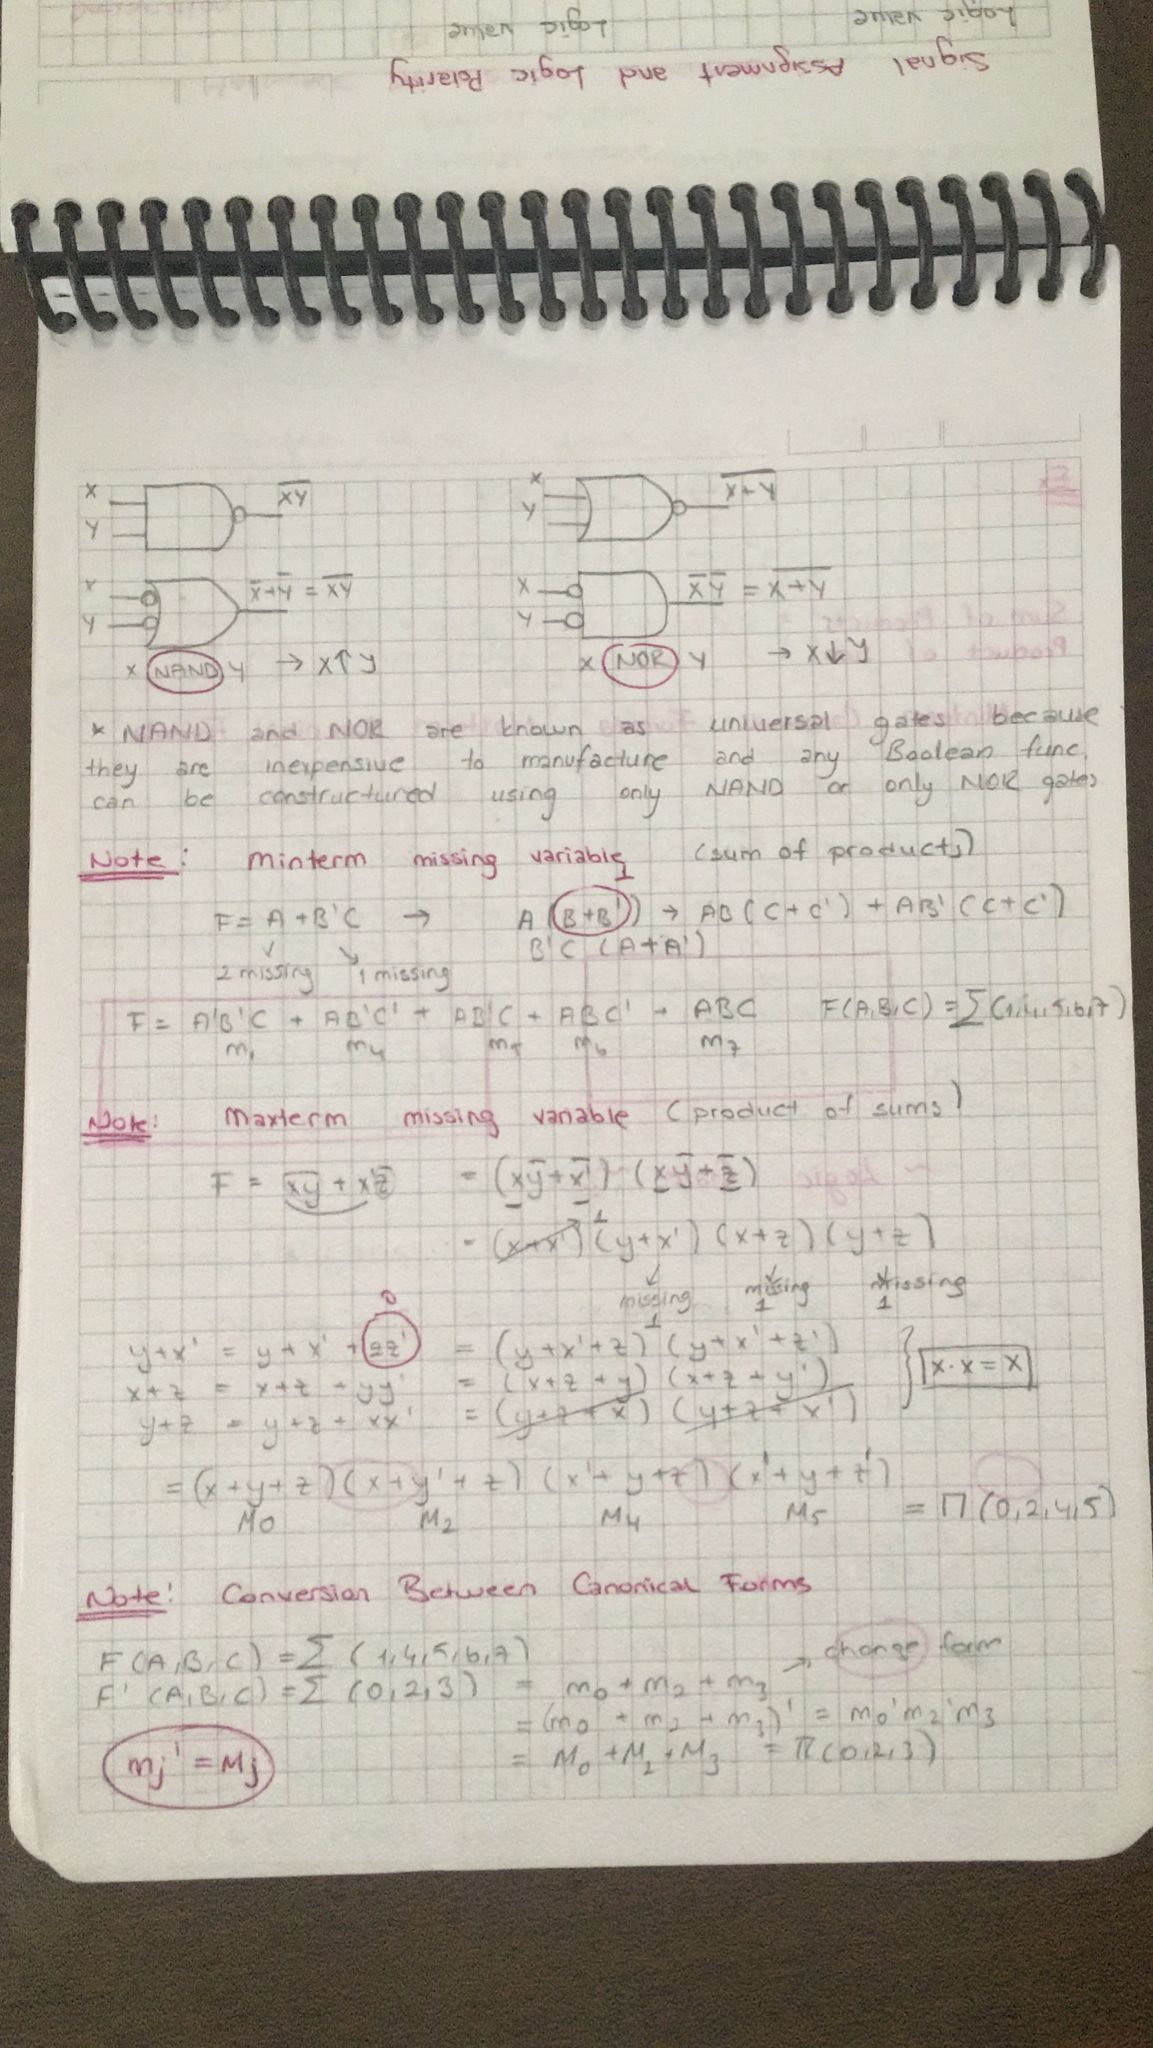 Signal Assignment and Logic Polarity
Logic value Logic value
X
Y
X̅Y̅
X
Y
X̅+̅Y̅
X
Y
X̅+Y̅ = X̅Y̅
X
Y
X̅ Y̅ = X̅+̅Y̅
X NAND Y → X↑Y
X NOR Y → X↓Y
* NAND and NOR are known as universal gates because
they are inexpensive to manufacture and any Boolean func.
can be constructured using only NAND or only NOR gates
Note: Minterm missing variable (sum of products)
F = A + B'C → A (B+B') 1 → AB (C+C') + AB' (C+C')
B'C (A+A')
2 missing 1 missing
F = A'B'C + AB'C' + AB'C + ABC' + ABC F(A,B,C) = Σ(1,4,5,6,7)
m1 m4 m5 m6 m7
Note: Maxterm missing variable (product of sums)
F = xy + x'z = (xy + x') · (xy + z)
= (x+x') 1 (y+x') (x+z) (y+z)
missing 1 missing 1 missing 1
0
y+x' = y+x' + zz' = (y+x'+z) (y+x'+z')
x+z = x+z + yy' = (x+z+y) (x+z+y')
y+z = y+z + xx' = (y+z+x) (y+z+x')
x·x = x
= (x+y+z) (x+y'+z) (x'+y+z) (x'+y+z')
M0 M2 M4 M5 = Π (0,2,4,5)
Note: Conversion Between Canonical Forms
F(A,B,C) = Σ (1,4,5,6,7) → change form
F'(A,B,C) = Σ (0,2,3) = m0 + m2 + m3
= (m0 + m2 + m3)' = m0'm2'm3
= M0 + M2 + M3 = π(0,2,3)
mj' = Mj